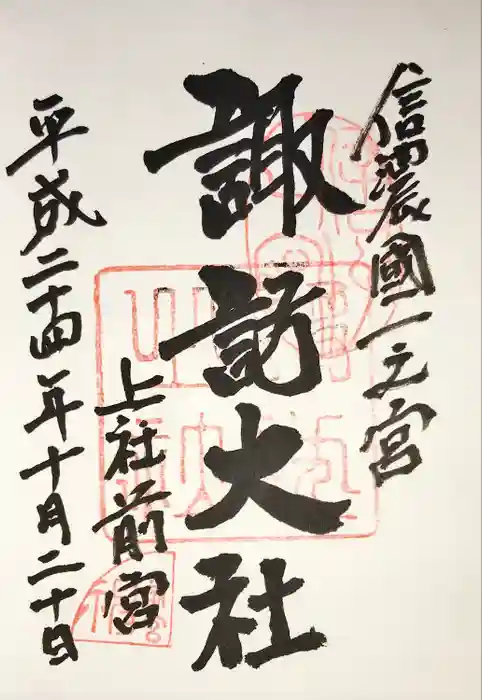 信濃國一之宮
諏訪大社
上社前宮
平成二十四年十月二十日